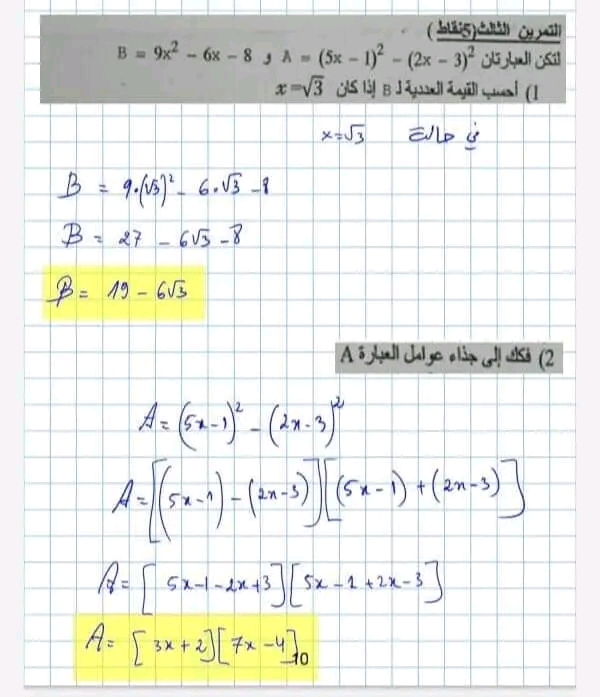 التمرين الثالث(5نقاط)
لتكن العبارتان A = (5x − 1)² − (2x − 3)² و B = 9x² − 6x − 8
1) أحسب القيمة العددية لـ B إذا كان x=√3
في حالة x=√3
B = 9.(√3)² - 6.√3 -8
B = 27 - 6√3 -8
B = 19 - 6√3
2) فكك إلى جذاء عوامل العبارة A
A = (5x-1)² - (2x-3)²
A = [(5x-1)-(2x-3)][(5x-1)+(2x-3)]
A = [5x-1-2x+3][5x-1+2x-3]
A = [3x+2][7x-4]
10